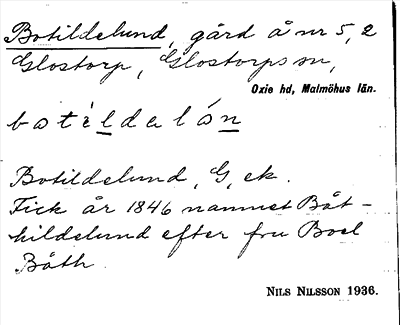 Botildelund, gård å nr 5, 2
Glostorp, Glostorps sn,
Oxie hd, Malmöhus län.
botildelón
Botildelund, G, ek.
Fick år 1846 namnet Båt-
hildelund efter fru Boel
Bååth.
NILS NILSSON 1936.